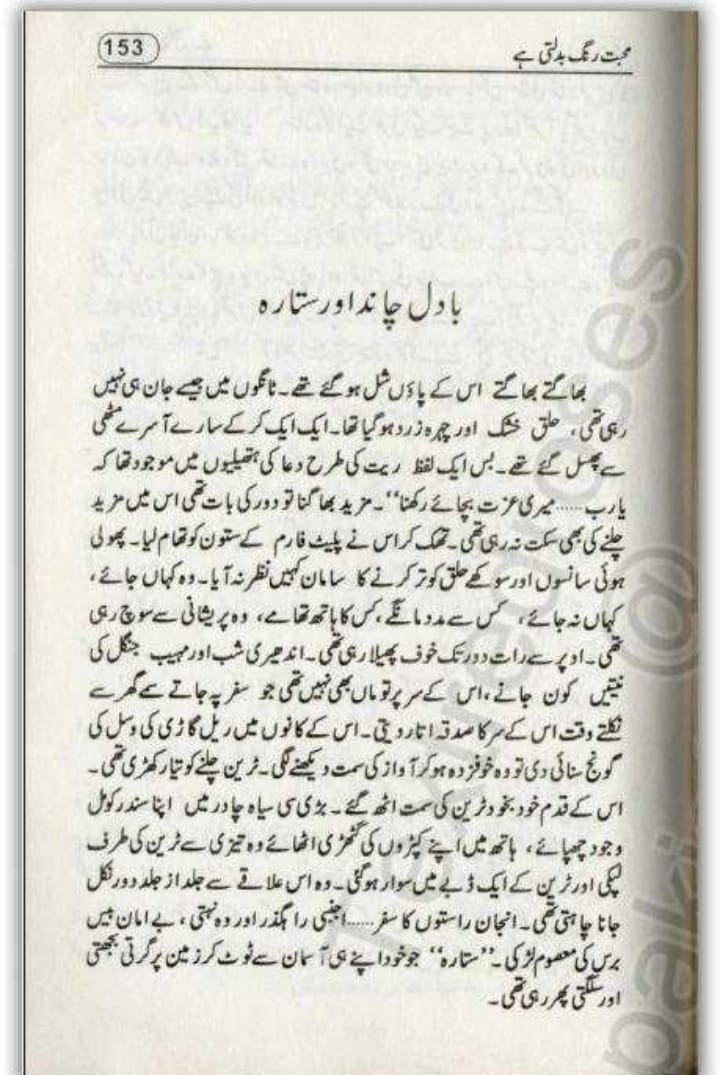 153
محبت رنگ بدلتی ہے
بادل چاند اور ستارہ
بھاگتے بھاگتے اس کے پاؤں شل ہو گئے تھے۔ ٹانگوں میں جیسے جان ہی نہیں
رہی تھی، حلق خشک اور چہرہ زرد ہو گیا تھا۔ ایک ایک کر کے سارے آسرے مٹھی
سے پھسل گئے تھے۔ بس ایک لفظ ریت کی طرح دعا کی ہتھیلیوں میں موجود تھا کہ
یا رب ...... میری عزت بچائے رکھنا‘‘۔ مزید بھاگنا تو دور کی بات تھی اس میں مزید
چلنے کی بھی سکت نہ رہی تھی۔ تھک کر اس نے پلیٹ فارم کے ستون کو تھام لیا۔ پھولی
ہوئی سانسوں اور سوکھے حلق کو تر کرنے کا سامان کہیں نظر نہ آیا۔ وہ کہاں جائے،
کہاں نہ جائے، کس سے مدد مانگے، کس کا ہاتھ تھامے، وہ پریشانی سے سوچ رہی
تھی۔ اوپر سے رات دور تک خوف پھیلا رہی تھی۔ اندھیری شب اور مہیب جنگل کی
نیتیں کون جانے، اس کے سر پر تو ماں بھی نہیں تھی جو سفر پہ جاتے سمے گھر سے
نکلتے وقت اس کے سر کا صدقہ اتار دیتی۔ اس کے کانوں میں ریل گاڑی کی وسل کی
گونج سنائی دی تو وہ خوفزدہ ہو کر آواز کی سمت دیکھنے لگی۔ ٹرین چلنے کو تیار کھڑی تھی۔
اس کے قدم خود بخود ٹرین کی سمت اٹھ گئے۔ بڑی سی سیاہ چادر میں اپنا سندر کومل
وجود چھپائے، ہاتھ میں اپنے کپڑوں کی گٹھڑی اٹھائے وہ تیزی سے ٹرین کی طرف
لپکی اور ٹرین کے ایک ڈبے میں سوار ہو گئی۔ وہ اس علاقے سے جلد از جلد دور نکل
جانا چاہتی تھی۔ انجان راستوں کا سفر ...... اجنبی راہگذر اور وہ نہتی، بے امان بیس
برس کی معصوم لڑکی۔ ’’ستارہ‘‘ جو خود اپنے ہی آسمان سے ٹوٹ کر زمین پر گرتی بجھتی
اور سلگتی پھر رہی تھی۔